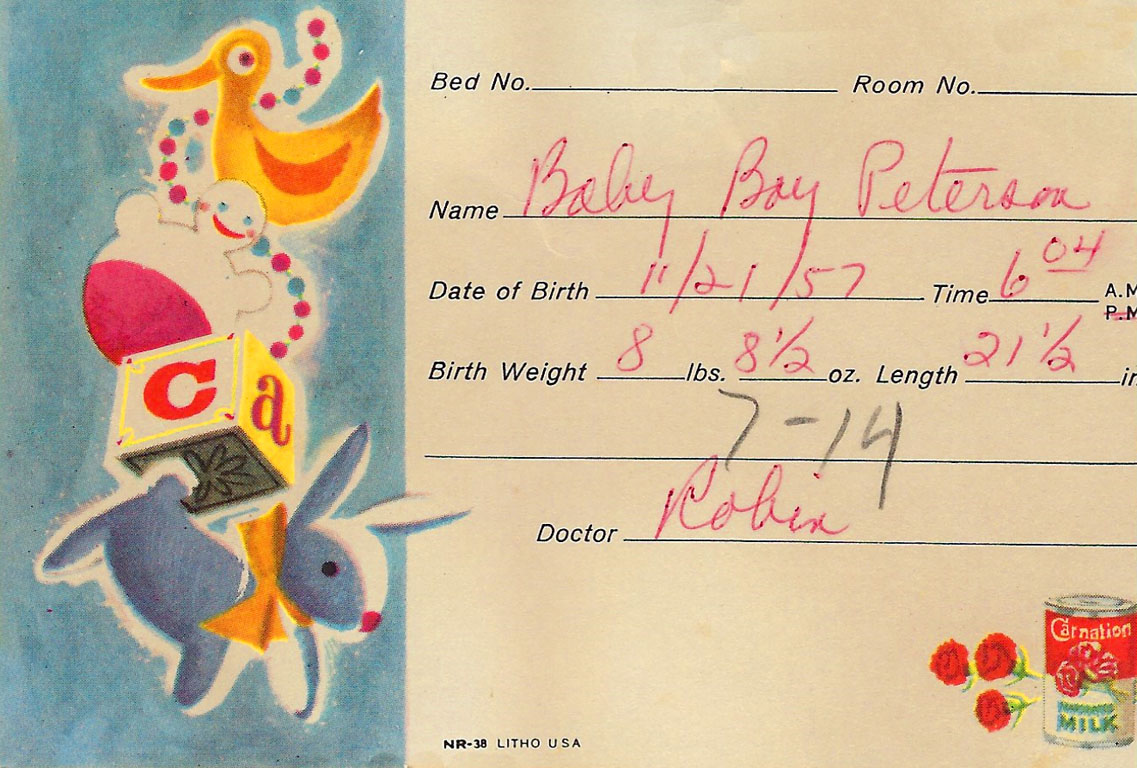 Bed No. Room No.
Name Baby Boy Peterson
Date of Birth 11/21/57 Time 6 04 A.M
P.M
Birth Weight 8 lbs. 8 1/2 oz. Length 21 1/2 in
7-14
Doctor Robin
C a
Carnation
EVAPORATED
MILK
NR-38 LITHO USA